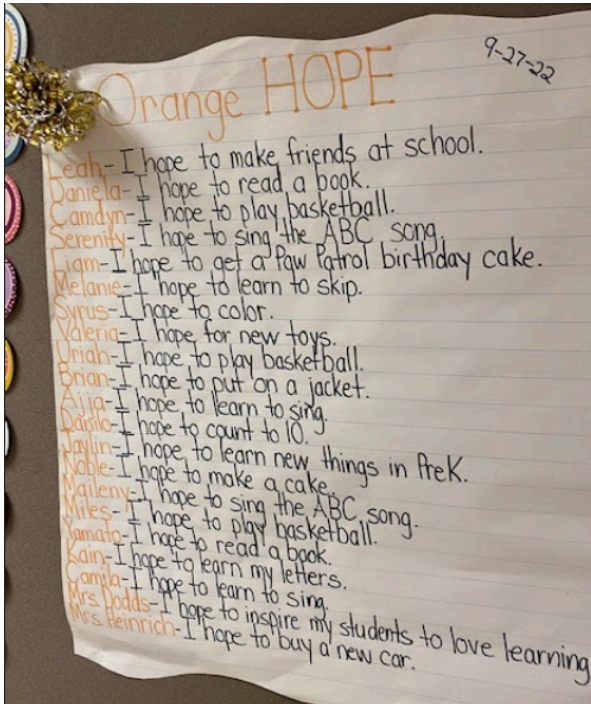 9-27-22
Orange HOPE
Leah-I hope to make friends at school.
Daniela-I hope to read a book.
Camdyn-I hope to play basketball.
Serenity-I hope to sing the ABC song.
Liam-I hope to get a Paw Patrol birthday cake.
Melanie-I hope to learn to skip.
Syrus-I hope to color.
Valeria-I hope for new toys.
Uriah-I hope to play basketball.
Brian-I hope to put on a jacket.
I hope to learn to sing.
Danilo-I hope to count to 10.
Jaylin-I hope to learn new things in PreK.
Noble-I hope to make a cake.
Maileny-I hope to sing the ABC song.
Miles-I hope to play basketball.
Yamato-I hope to read a book.
Kain-I hope to learn my letters.
Camila-I hope to learn to sing.
Mrs. Dodds-I hope to inspire my students to love learning
Mrs. Heinrich-I hope to buy a new car.